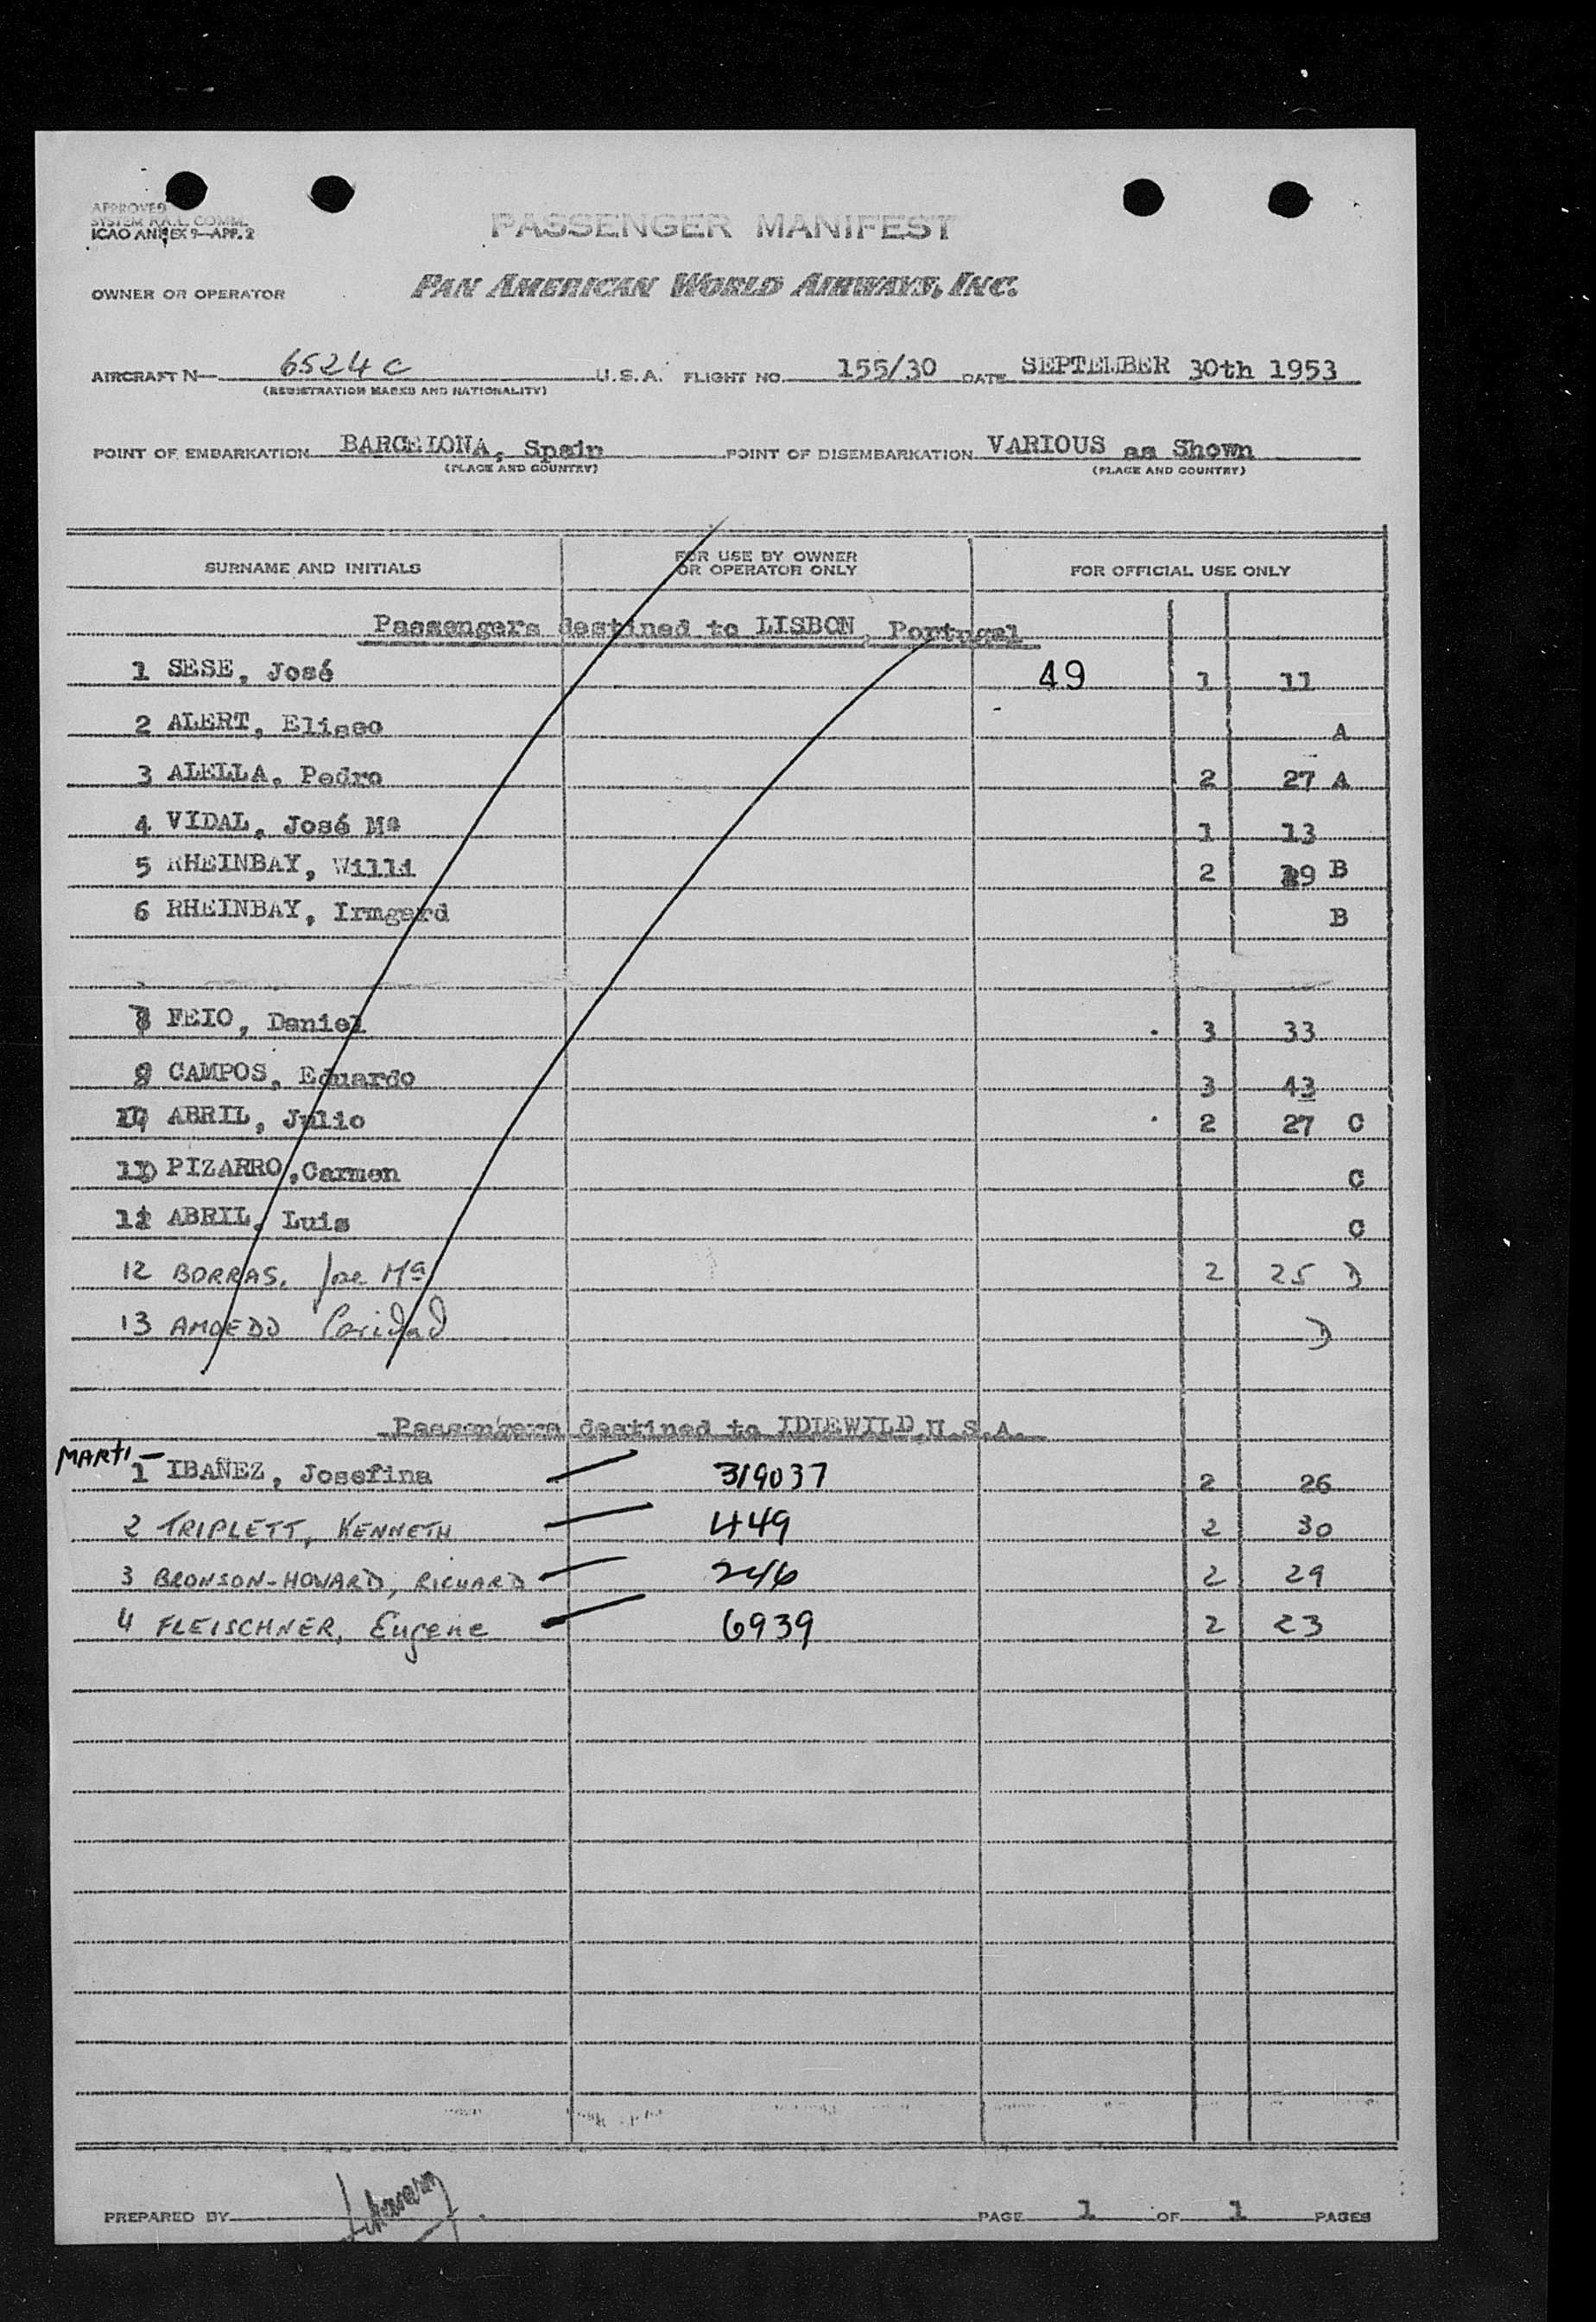 APPROVED
SYSTEM FAL. COMM.
ICAO ANNEX 9—APP. 2
PASSENGER MANIFEST
OWNER OR OPERATOR PAN AMERICAN WORLD AIRWAYS, INC.
AIRCRAFT N— 6524C U.S.A. FLIGHT NO. 155/30 DATE SEPTEMBER 30th 1953
(REGISTRATION MARKS AND NATIONALITY)
POINT OF EMBARKATION BARCELONA, Spain POINT OF DISEMBARKATION VARIOUS as Shown
(PLACE AND COUNTRY) (PLACE AND COUNTRY)
SURNAME AND INITIALS FOR USE BY OWNER OR OPERATOR ONLY FOR OFFICIAL USE ONLY
Passengers destined to LISBON, Portugal
1 SESE, José 49 1 11
2 ALERT, Eliseo A
3 ALELLA, Pedro 2 27 A
4 VIDAL, José Mª 1 13
5 RHEINBAY, Willi 2 39 B
6 RHEINBAY, Irmgard B
FEIO, Daniel 3 33
CAMPOS, Eduardo 3 43
ABRIL, Julio 2 27 C
PIZARRO, Carmen C
ABRIL, Luis C
12 BORRAS, Jose Mª 2 25 D
13 AMOEDO Caridad D
Passengers destined to IDLEWILD, U.S.A.
MARTI —
1 IBAÑEZ, Josefina 319037 2 26
2 TRIPLETT, KENNETH 449 2 30
3 BRONSON-HOWARD, RICHARD 246 2 29
4 FLEISCHNER, Eugene 6939 2 23
PREPARED BY PAGE 1 OF 1 PAGES